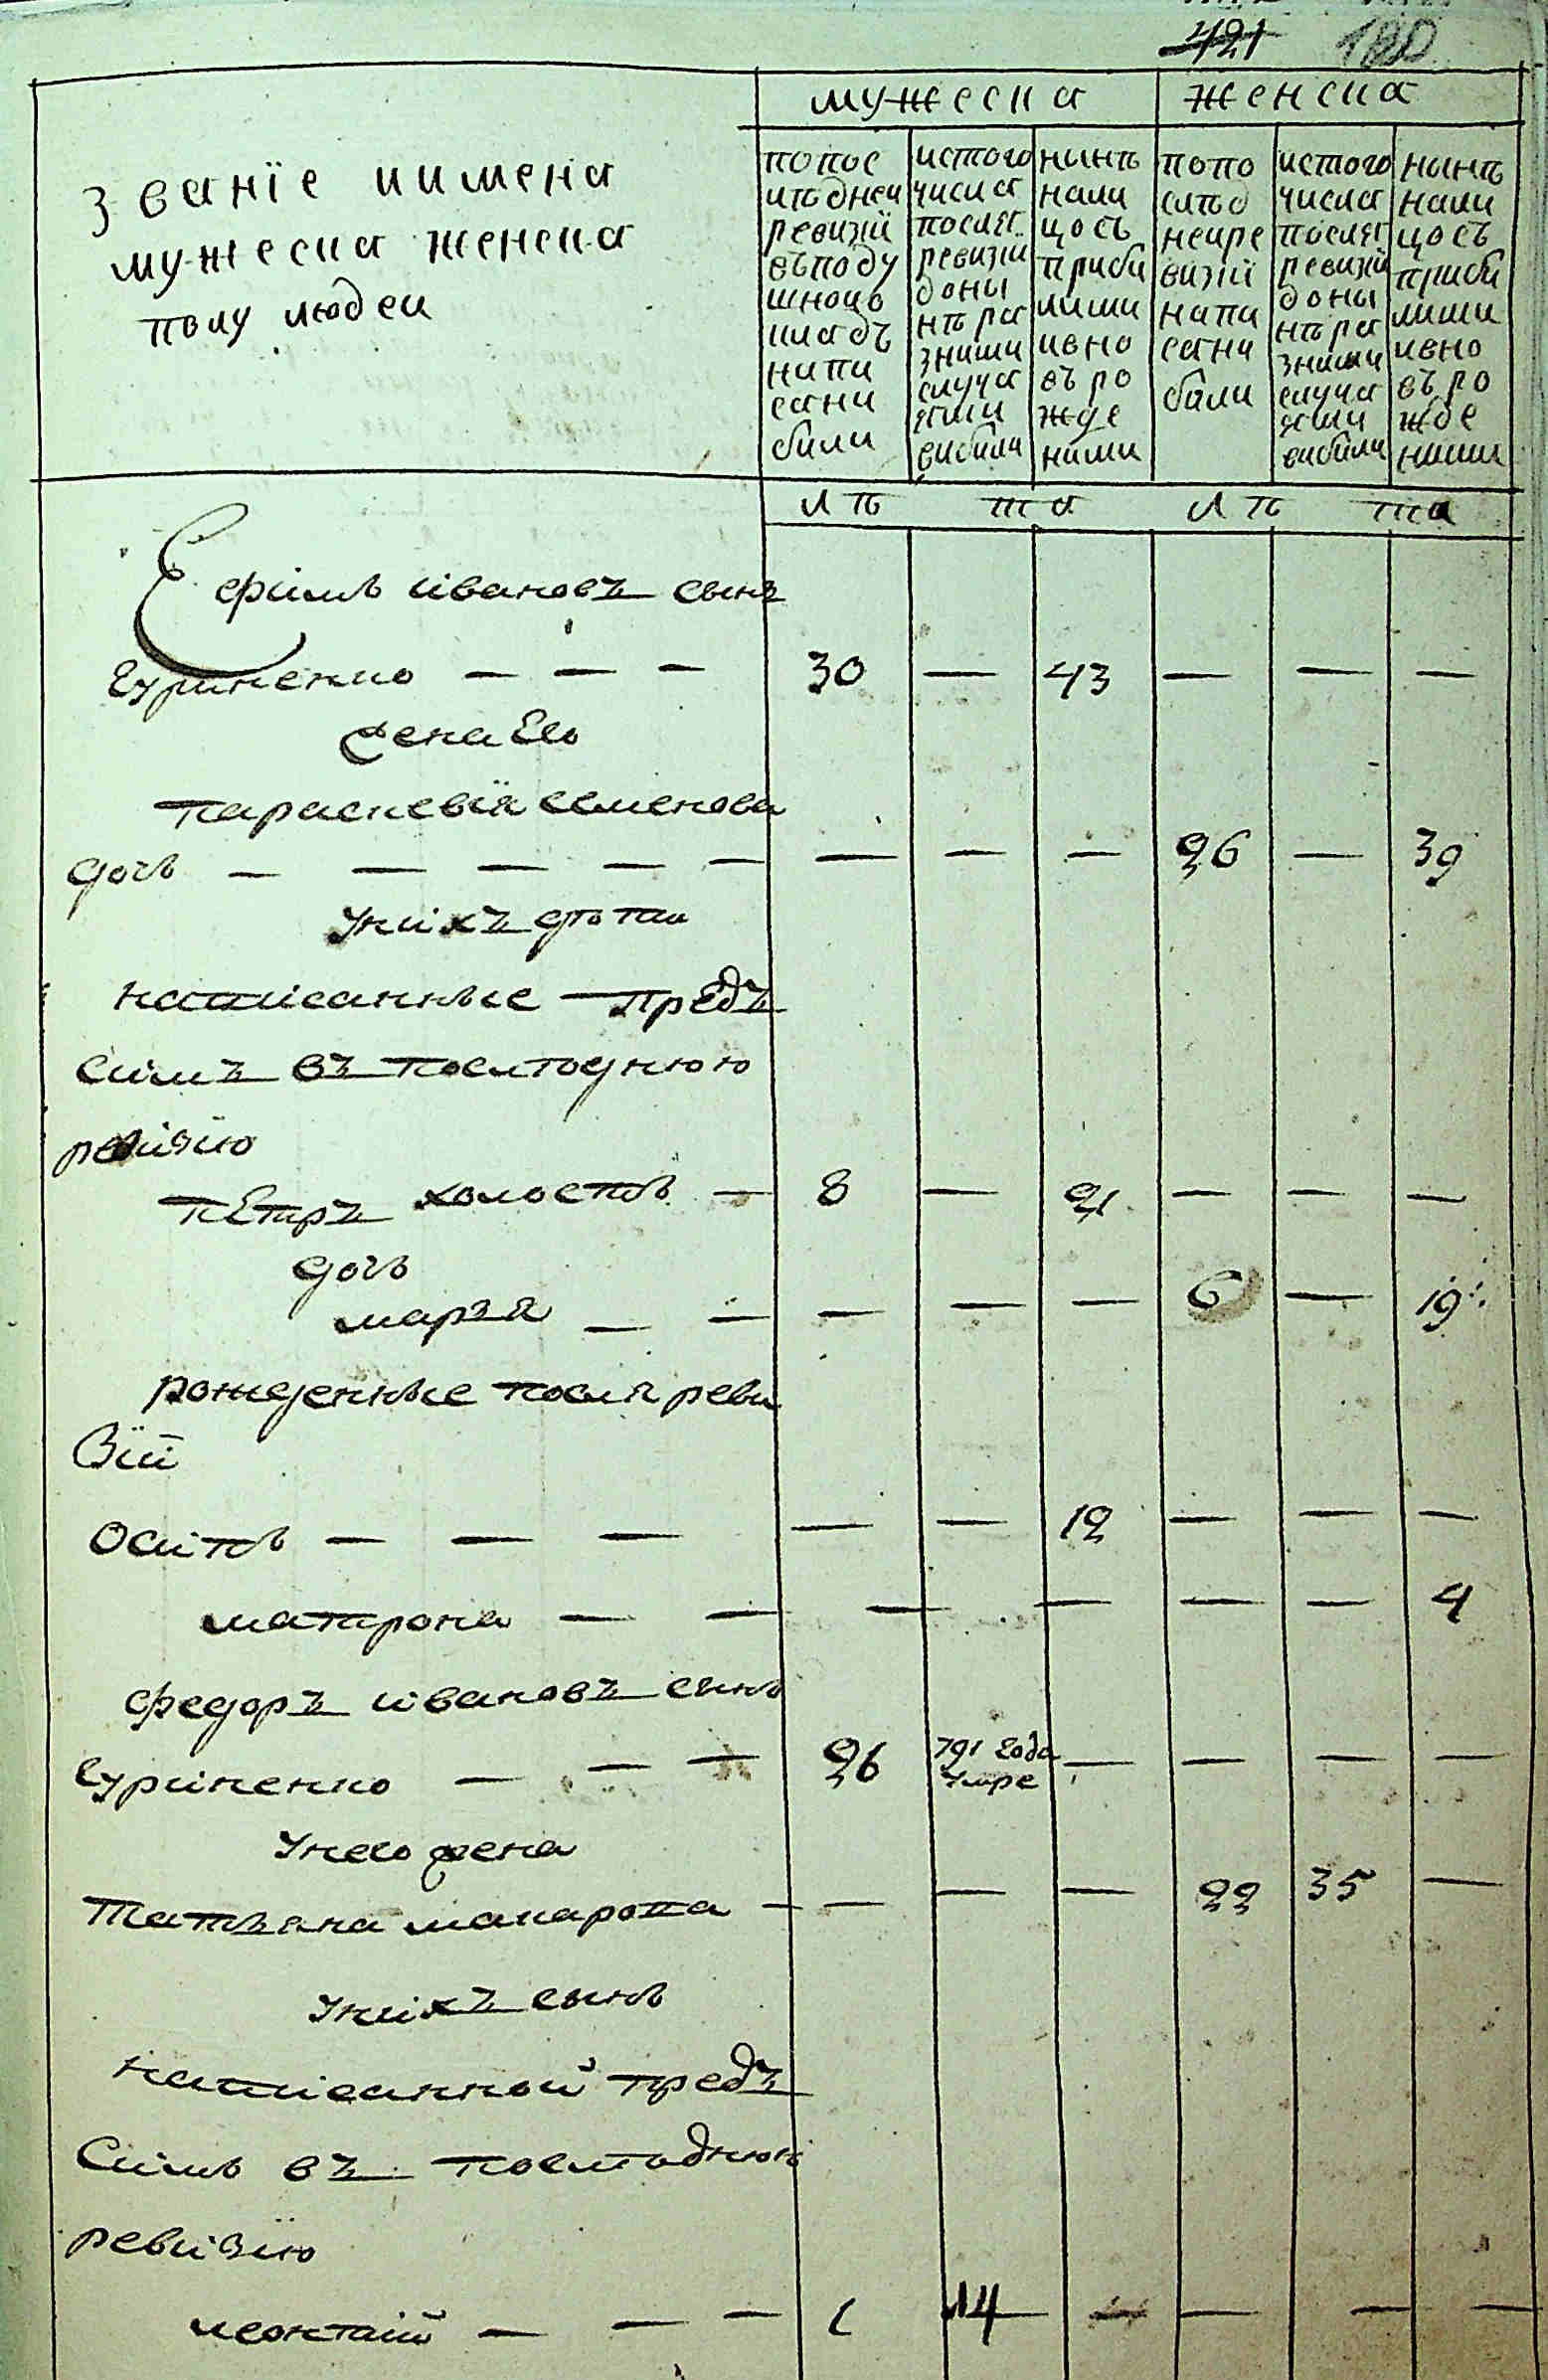 421 180
мужеска женска
званїе иимена
мужеска женска
полу людеи
попос
лѣднеи
ревизїи
въподу
шноцъ
кладъ
напи
сани
били
истого
числа
послѧ
ревизїи
доны
нѣ ра
зними
случа
ѧми
вибили
нынѣ
нали
цосъ
приби
лими
ивно
въ ро
жде
ними
попо
слѣд
неире
визїи
напи
сани
били
истого
числа
послѧ
ревизїи
доны
нѣ ра
зними
случа
ѧми
вибили
нынѣ
нали
цосъ
приби
лими
ивно
въ ро
жде
ними
лѣ та лѣ та
Ефимъ ивановъ сынъ
гуриненко — — — 30 — 43 — — —
жена Его
параскевїя семенова
дочь — — — — — — — — 26 — 39
унихъ дѣти
написанные предъ
симъ въ послѣднюю
ревизїю
пЕтръ холостъ — 8 — 21 — — —
дочь
марья — — — — — 6 — 19
рожденные посля реви
зїй
Осипъ — — — — — 12 — — —
матрона — — — — — — 4
федоръ ивановъ сынъ
гуриненко — — — 26 791 года умре — — — —
унего жена
татьяна макарова — — — — 22 35 —
унихъ сынъ
написанной предъ
Симъ въ послѣднюю
ревизїю
леонтїй — — — 1 14 — — — —